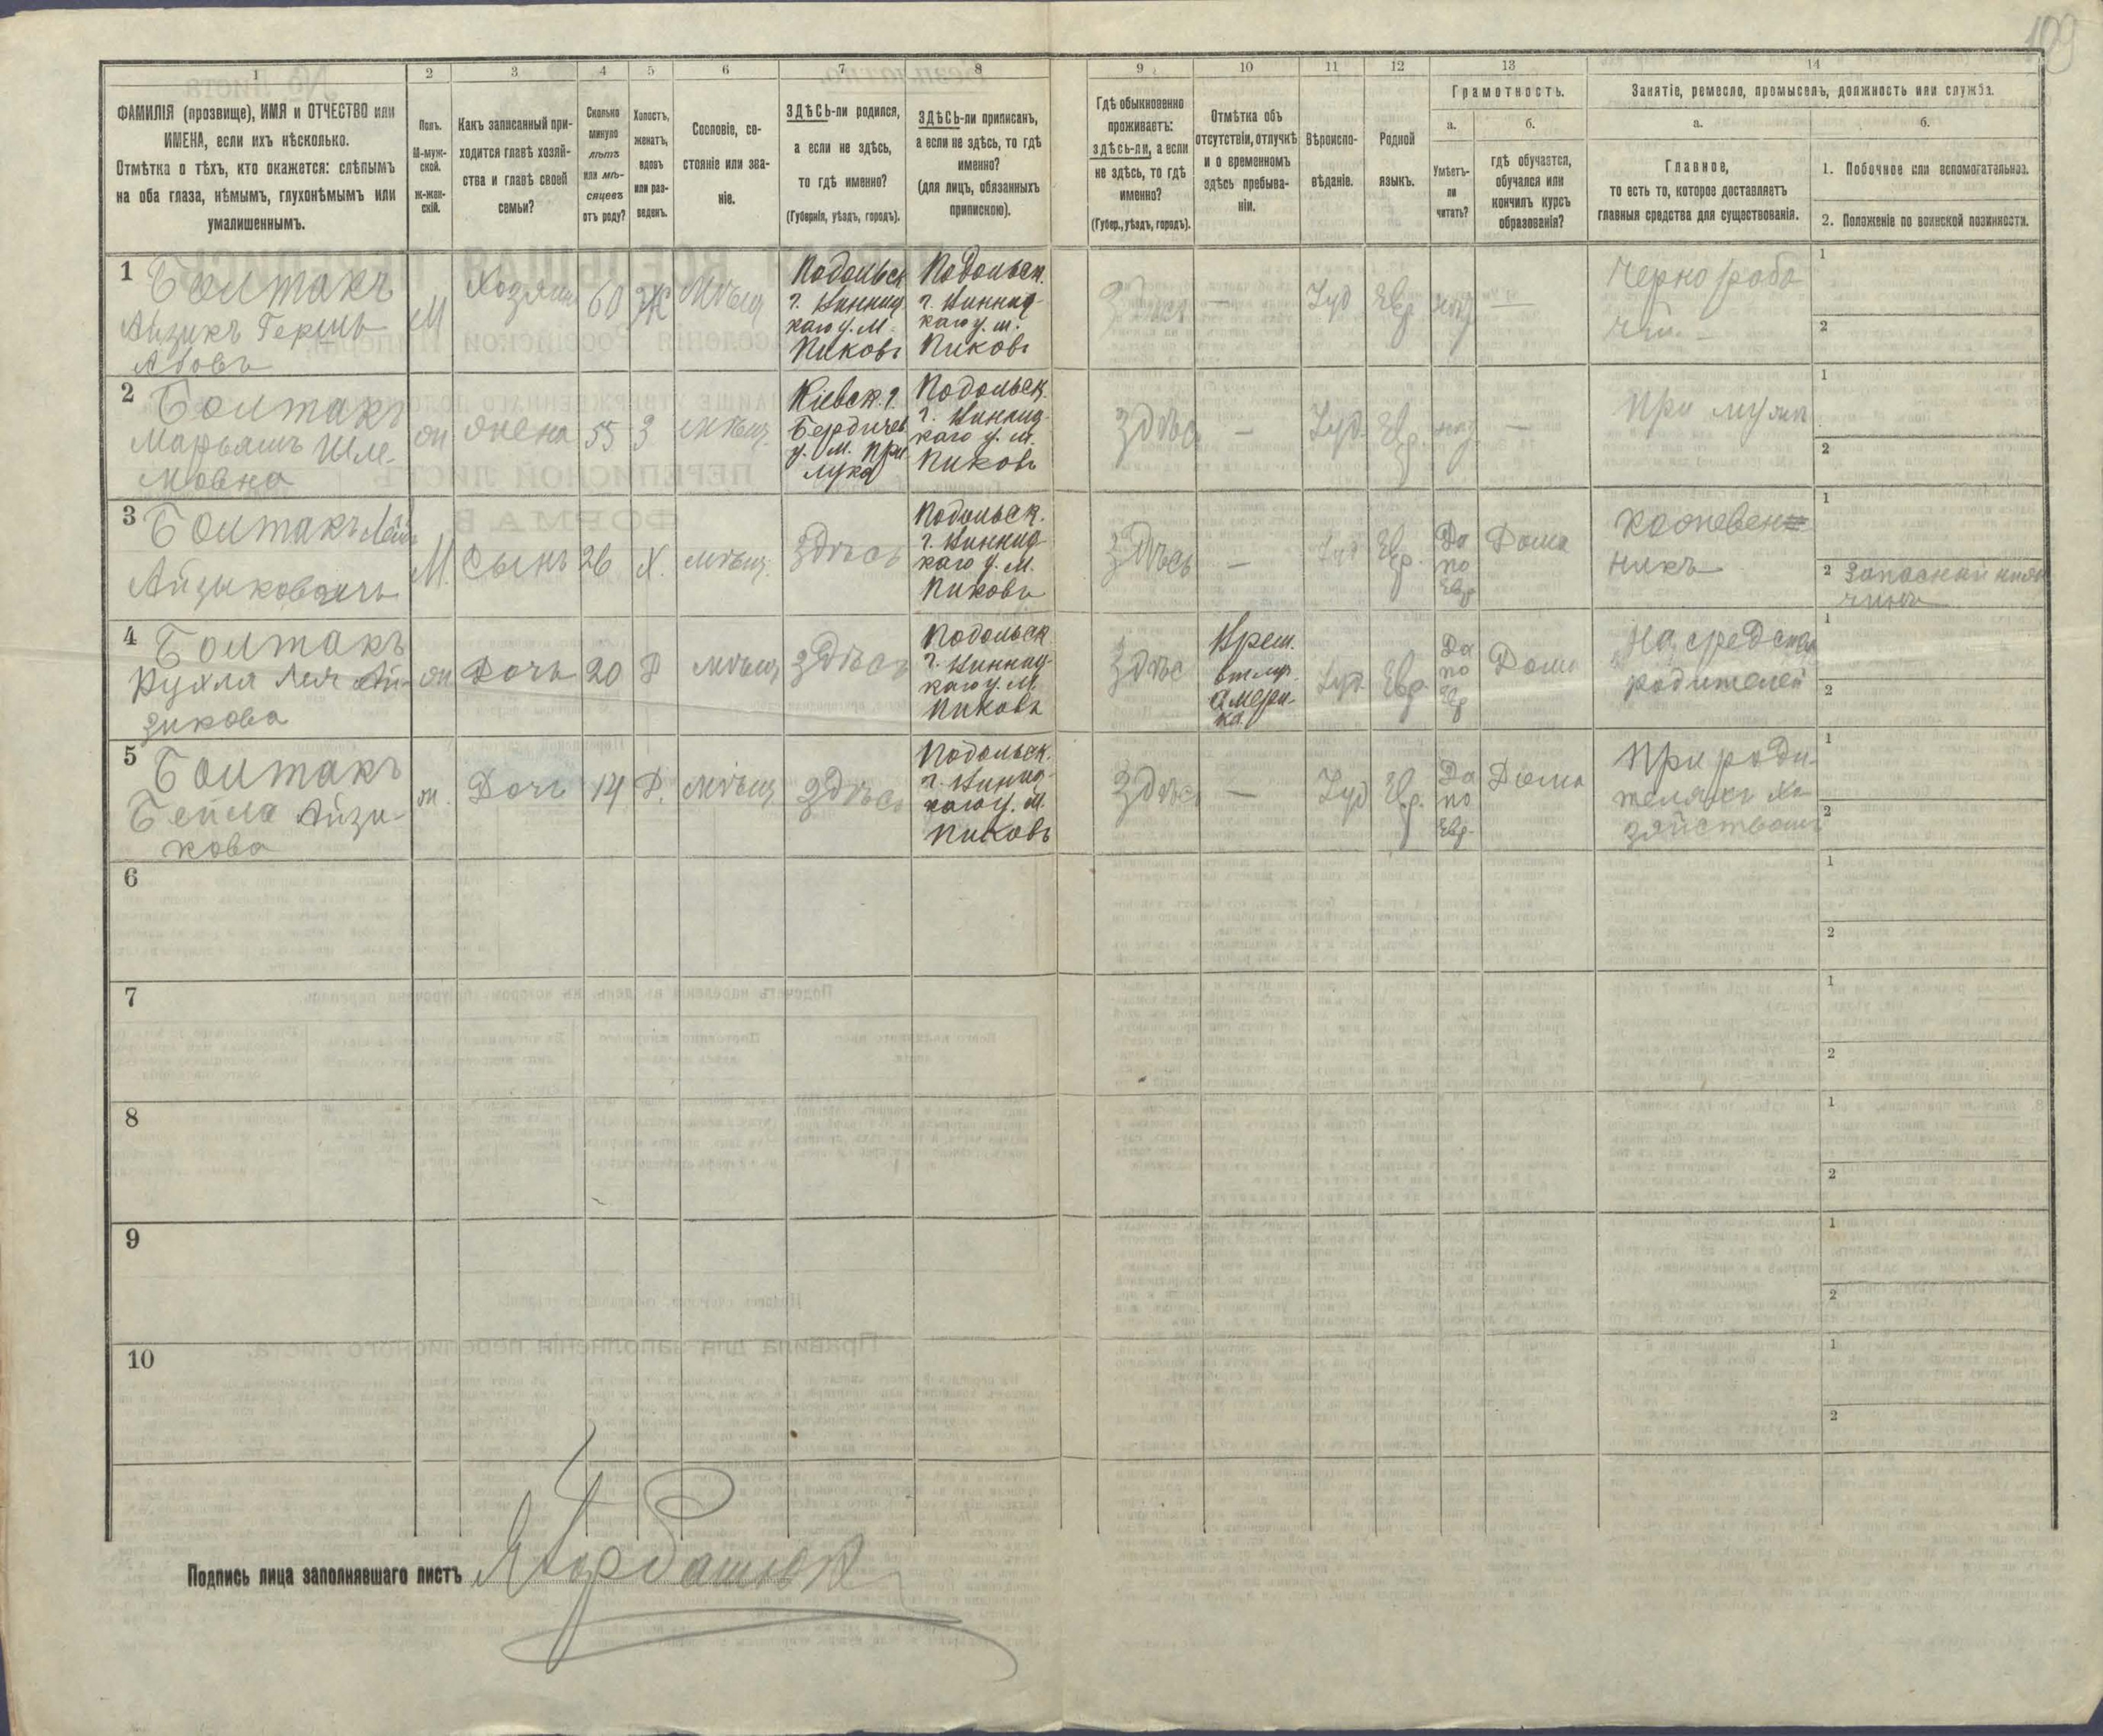 109
1
2
3
4
5
6
7
8
9
10
11
12
13
14
ФАМИЛІЯ (прозвище), ИМЯ и ОТЧЕСТВО или
ИМЕНА, если ихъ нѣсколько.
Отмѣтка о тѣхъ, кто окажется: слѣпымъ
на оба глаза, нѣмымъ, глухонѣмымъ или
умалишеннымъ.
Полъ.
М-муж-
ской.
Ж-жен-
скій.
Какъ записанный при-
ходится главѣ хозяй-
ства и главѣ своей
семьи?
Сколько
минуло
лѣтъ
или мѣ-
сяцевъ
отъ роду?
Холостъ,
женатъ,
вдовъ
или раз-
веденъ.
Сословіе, со-
стояніе или зва-
ніе.
ЗДѢСЬ-ли родился,
а если не здѣсь,
то гдѣ именно?
(Губернія, уѣздъ, городъ).
ЗДѢСЬ-ли приписанъ,
а если не здѣсь, то гдѣ
именно?
(для лицъ, обязанныхъ
припискою).
Гдѣ обыкновенно
проживаетъ:
здѣсь-ли, а если
не здѣсь, то гдѣ
именно?
(Губер., уѣздъ, городъ).
Отмѣтка объ
отсутствіи, отлучкѣ
и о временномъ
здѣсь пребыва-
ніи.
Вѣроиспо-
вѣданіе.
Родной
языкъ.
Грамотность.
а.
Умѣетъ-
ли
читать?
б.
гдѣ обучается,
обучался или
кончилъ курсъ
образованія?
Занятіе, ремесло, промыселъ, должность или служба.
а.
Главное,
то есть то, которое доставляетъ
главныя средства для существованія.
б.
1. Побочное или вспомогательное.
2. Положеніе по воинской повинности.
1
Болтакъ
Айзикъ Гершъ
М
Хозяин
60
Ж
мѣщ
Подольск
г. Винниц
каго у. М.
Пиковъ
Подольск.
г. Винниц-
каго у. м.
Пиковъ
Здѣсь
—
Іуд
Евр.
нѣт
—
Чернорабо
чій
1
2
2
Болтакъ
Марьямъ Шле-
мовна
ж
жена
55
З
мѣщ.
Кіевск. г.
Бердичев
у. М. При
лука
Подольск.
г. Винниц-
каго у. м.
Пиковъ
Здѣсь
—
Іуд.
Евр.
нѣт
—
При мужѣ
1
2
3
Болтакъ
Айзиковичъ
М.
Сынъ
26
Х.
мѣщ.
Здѣсь
Подольск.
г. Винниц-
каго у. М.
Пиковъ
Здѣсь
—
Іуд
Евр.
Да
по
Евр
Дома
1
2
4
Болтакъ
Рухля Лея Ай-
зикова
ж
Дочь
20
Д
мѣщ
Здѣсь
Подольск
г. Винниц-
каго у. М.
Пиковъ
Здѣс
Амери-
ка
Іуд.
Евр.
Да
по
Евр
Дома
На средства
родителей
1
2
5
Болтакъ
Бейла Айзи-
кова
ж.
Дочь
14
Д.
мѣщ
Здѣсь
Подольск.
г. Винниц-
каго у. М.
Пиковъ
Здѣсь
—
Іуд
Евр.
Да
по
Евр.
Дома
При роди-
теляхъ хо
зяйствомъ
1
2
6
1
2
7
1
2
8
1
2
9
1
2
10
1
2
Подпись лица заполнявшаго листъ